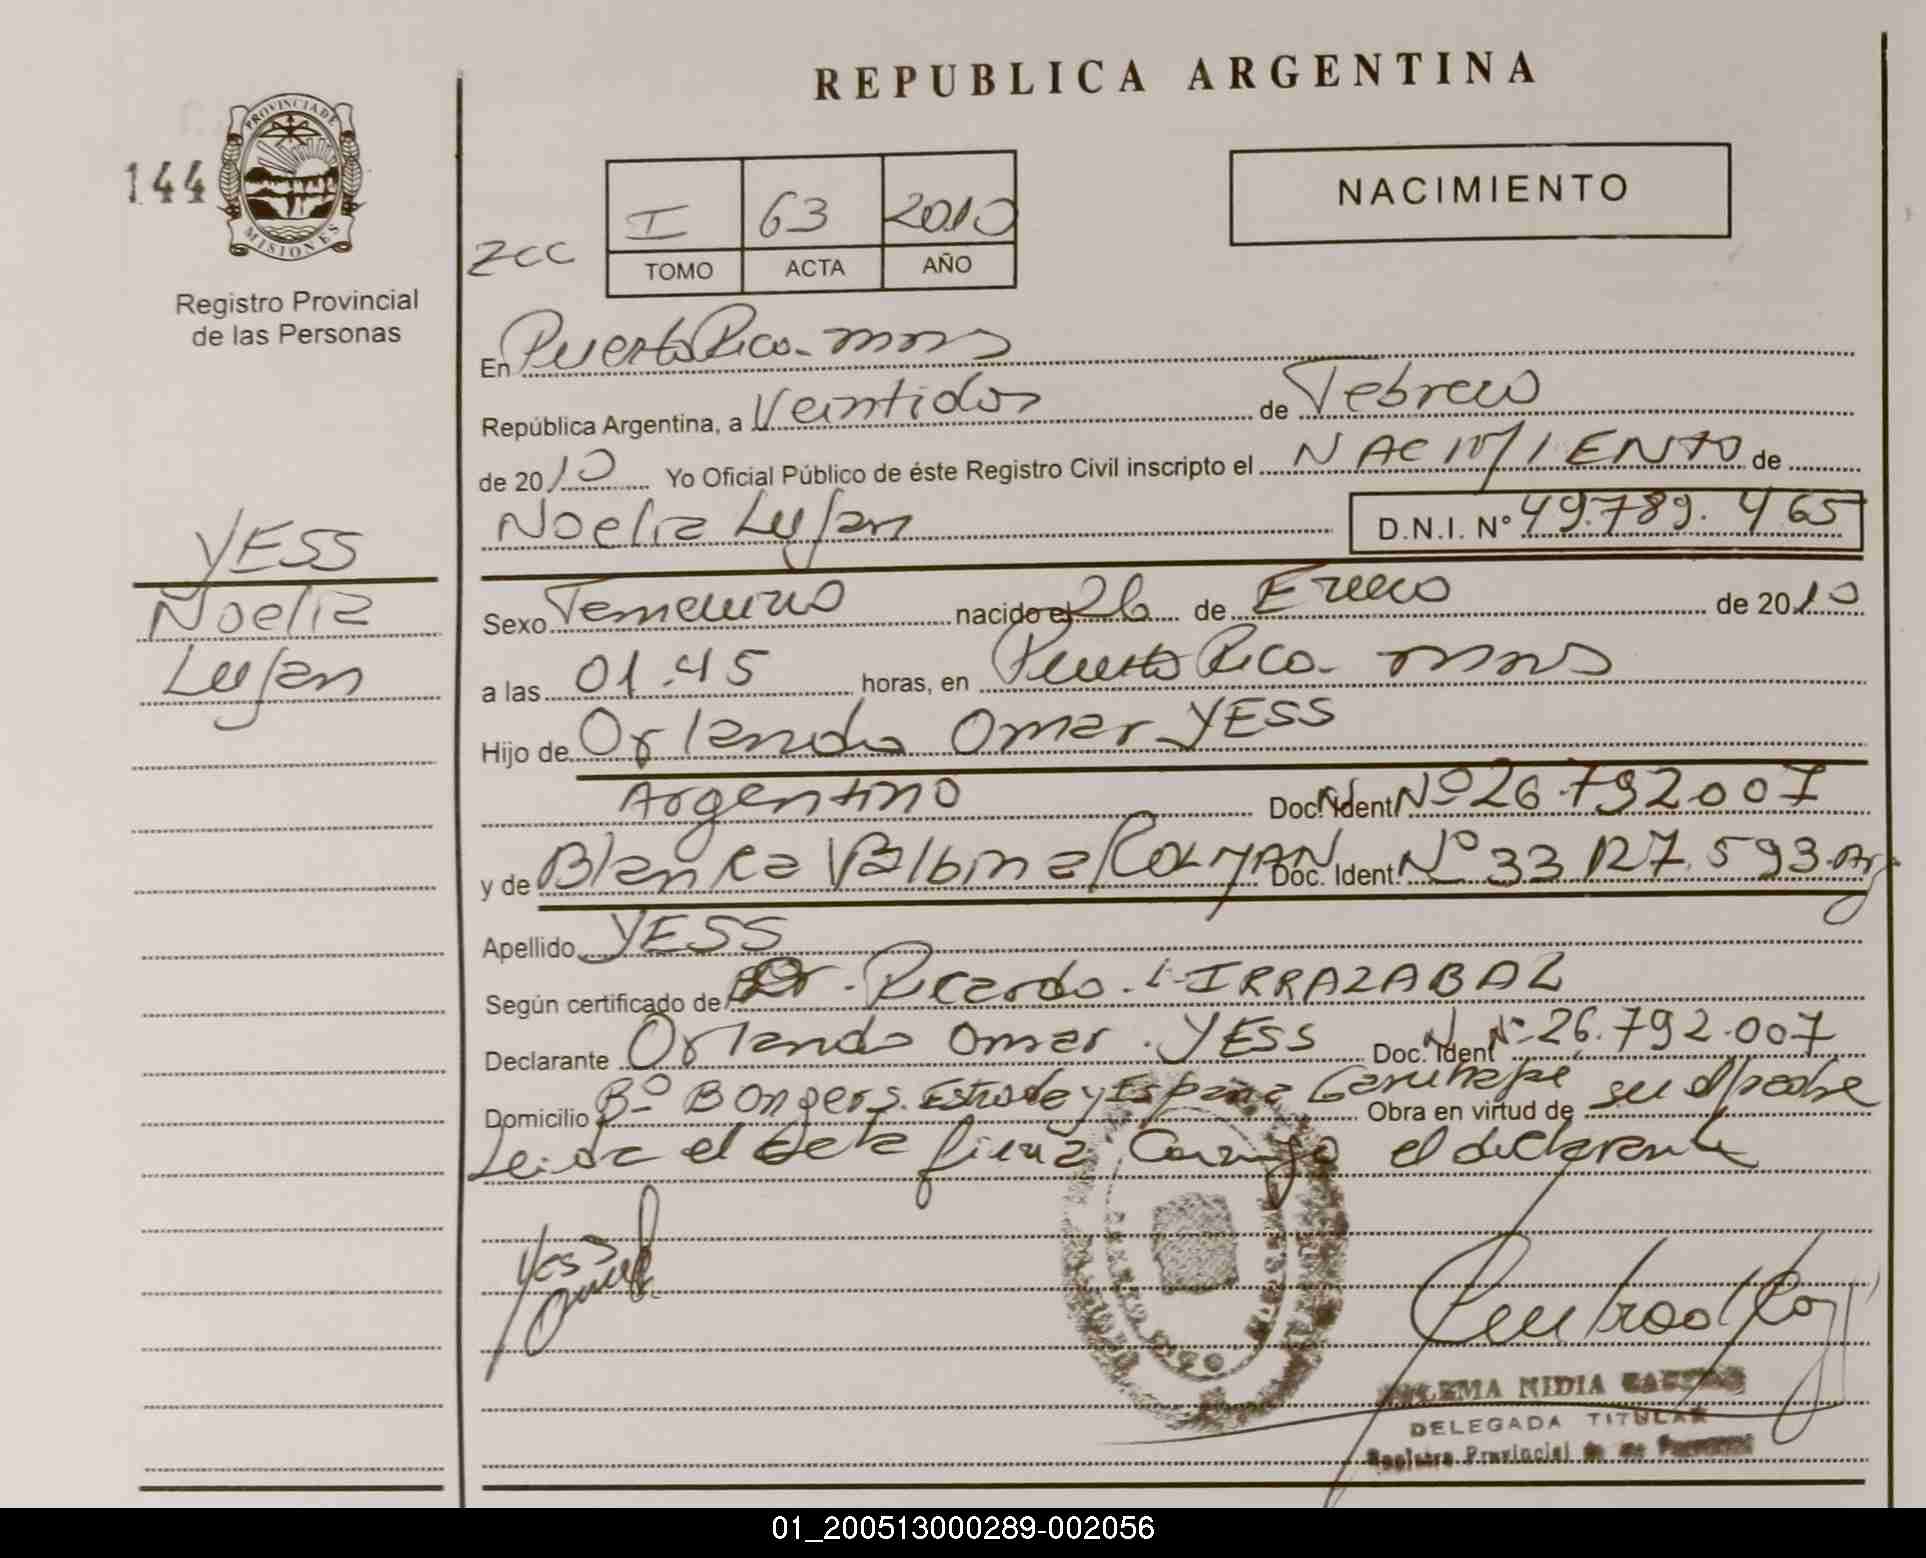 REPUBLICA ARGENTINA
144
PROVINCIA DE
MISIONES
Registro Provincial
de las Personas
NACIMIENTO
I 63 2010
TOMO ACTA AÑO
En Puerto Rico - mns
República Argentina, a Veintidos de Febrero
de 2010 Yo Oficial Público de éste Registro Civil inscripto el NACIMIENTO de
Noelia Lujan D.N.I. N° 49.789.465
YESS
Noelia
Lujan
Sexo Femenino nacido el 26 de Enero de 2010
a las 01.45 horas, en Puerto Rico - mns
Hijo de Orlando Omar YESS
Argentino Doc. Ident. Nº 26.792.007
y de Blanca Balbina Doc. Ident. Nº 33.127.593 Arg
Apellido YESS
Según certificado de Dr. Ricardo L. IRRAZABAL
Declarante Orlando Omar YESS Doc. Ident. Nº 26.792.007
Domicilio Bº Bongers. y España Garuhape Obra en virtud de su d/padre
Leida el acta firma Conmigo el declarante
Yess
NIDIA
DELEGADA TITULAR
Registro Provincial de las Personas
01_200513000289-002056